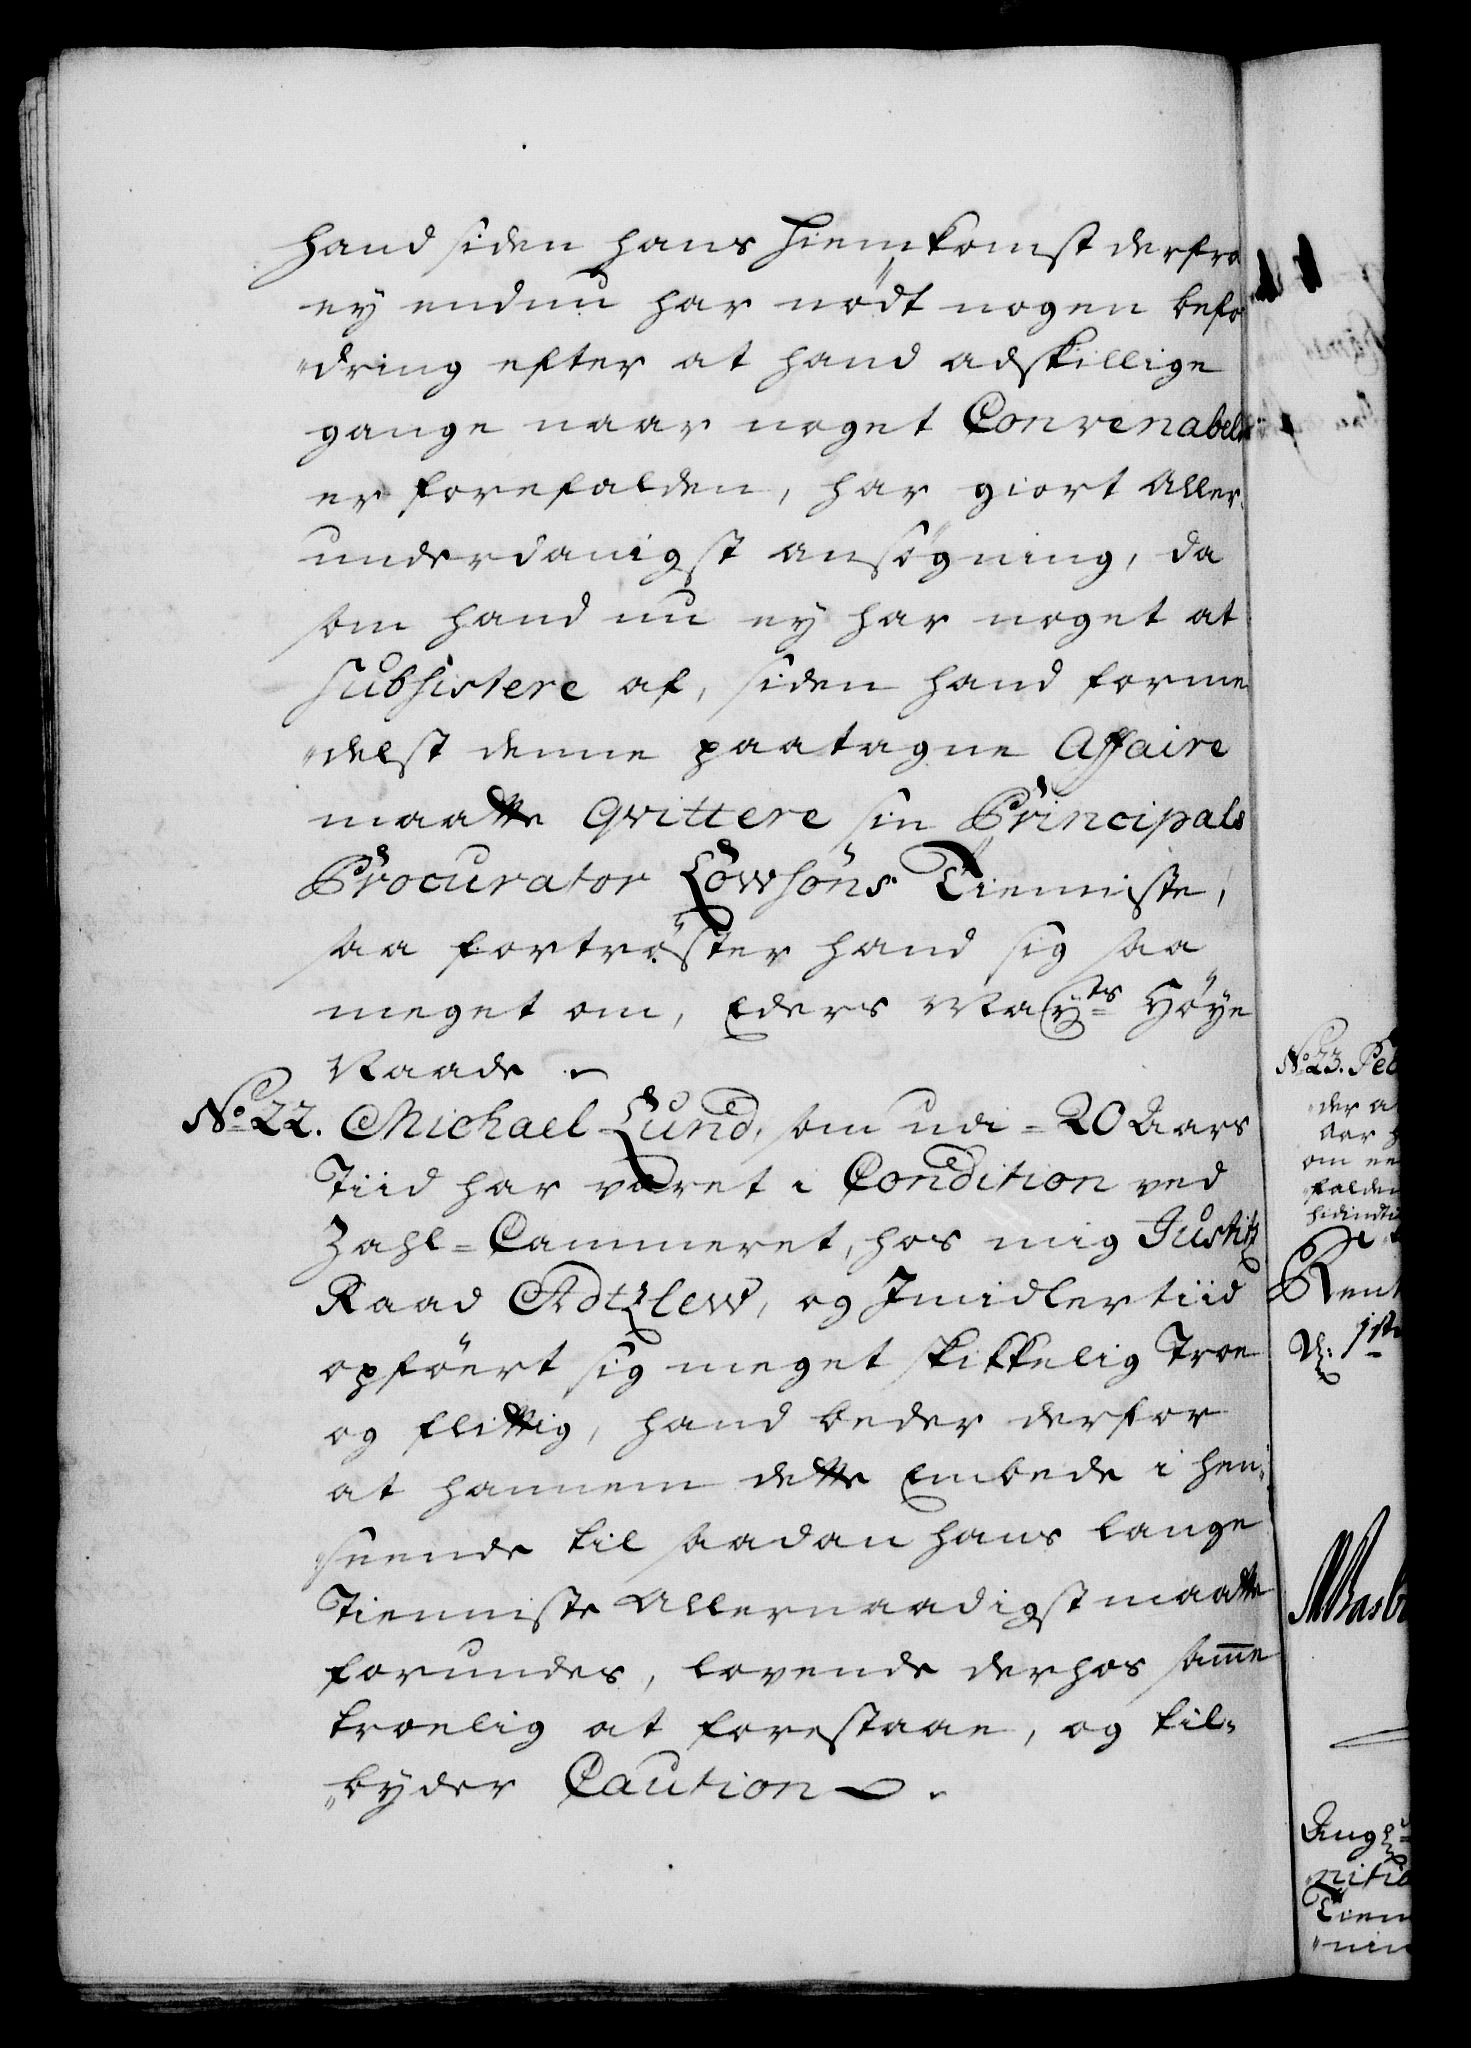 hand siden hans Hiemkomst derfra
ey endnu har nødt nogen befo
"dring efter at hand adskillige
gange naar noget Convenabel
er forefalden, har giort Aller-
underdanigst ansøgning, da
som hand nu ey har noget at
Subsistere af, siden hand forme
"delst denne paatagne Affaire
maatte qvittere sin Principals
Procurator Løwsøns Tienniste,
saa fortrøster hand sig saa
meget om, Eders Mayts Høye
Naade.
No 22. Michael Lund, som udi 20 Aars
Tiid har været i Condition ved
Zahl-Cammeret, hos mig Justitz
Raad Adtzlew, og Imidlertiid
opføert sig meget skikkelig Troe
og flittig, hand beder derfor
at hannem dette Embede i hen-
"seende til saadan hans lange
Tienniste Allernaadigst maatte
forundes, lovende derhos samme
troelig at forestaae, og til-
"byder Caution.
No 23. Pet
"der a
om ee
"falden
Rent
1ste
Tien